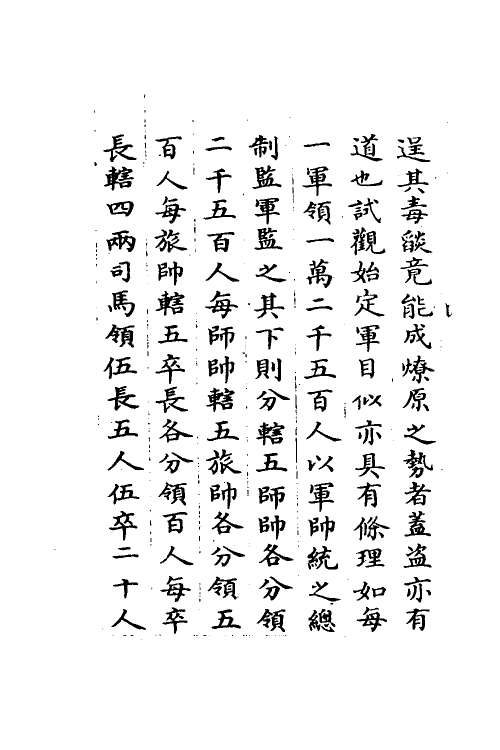 逞其毒燄竟能成燎原之勢者蓋盜亦有
道也試觀始定軍目似亦具有條理如每
一軍領一萬二千五百人以軍帥統之總
制監軍監之其下則分轄五師帥各分領
二千五百人每師帥轄五旅帥各分領五
百人每旅帥轄五卒長各分領百人每卒
長轄四兩司馬領伍長五人伍卒二十人